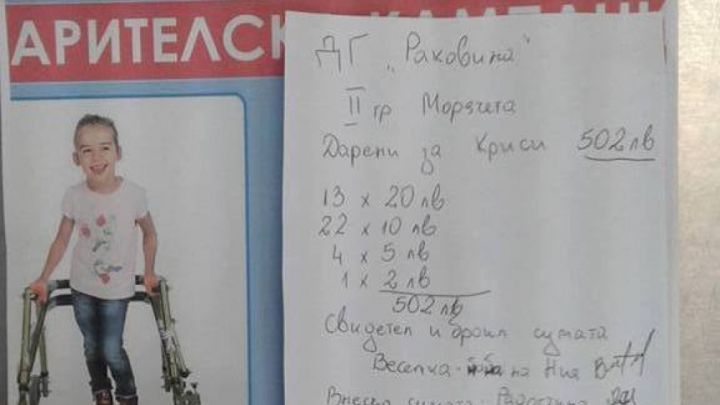 АРИТЕЛСК КАМПАН
ДГ „Раковина"
II гр Морячета
Дарени за Криси 502 лв
13 x 20 лв
22 x 10 лв
4 x 5 лв
1 x 2 лв
502 лв
Свидетел и броил сумата
Веселка на Ния
Внесъл сумата: